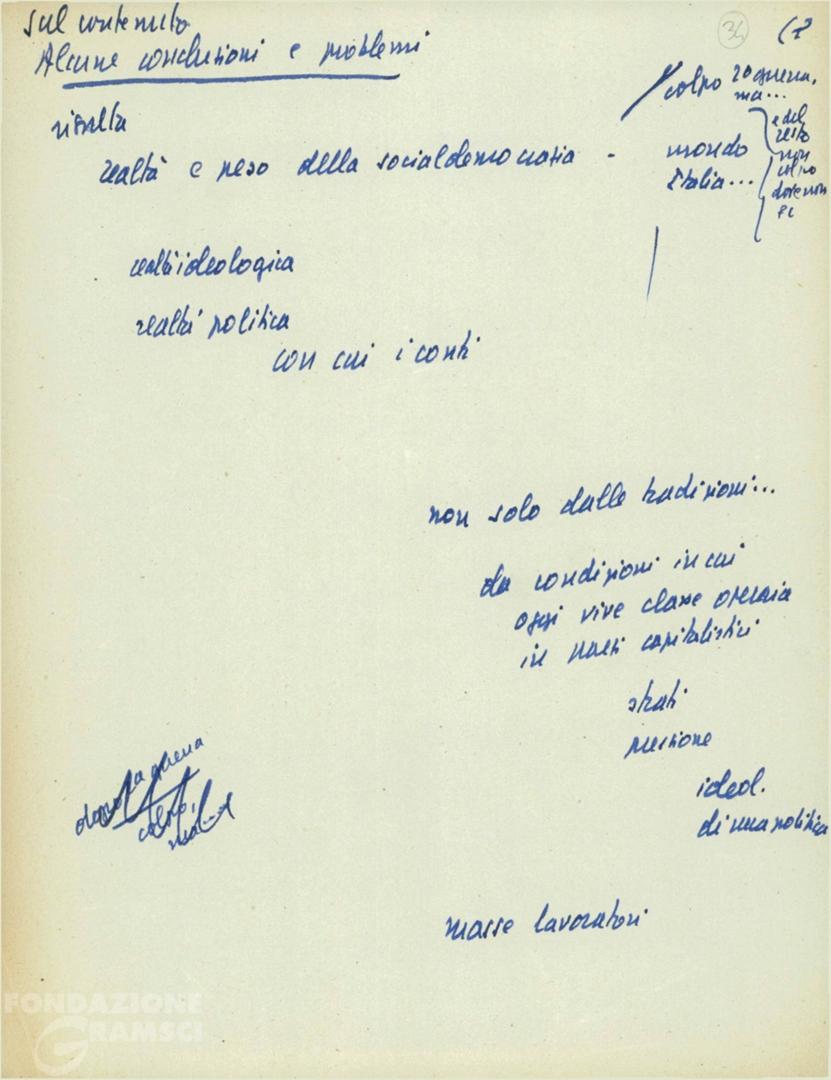 sul contenuto
Alcune conclusioni e problemi
34
risulta
realtà e peso della socialdemocrazia -
colpo 2a guerra,
ma...
mondo
Italia...
e del
resto
non
colpo
dove non
realtà ideologica
realtà politica
con cui i conti
non solo dalle tradizioni...
da condizioni in cui
oggi vive classe operaia
in paesi capitalistici
strati
pressione
ideol.
di una politica
dopo la guerra
colpo,
ma...
masse lavoratori
FONDAZIONE
GRAMSCI